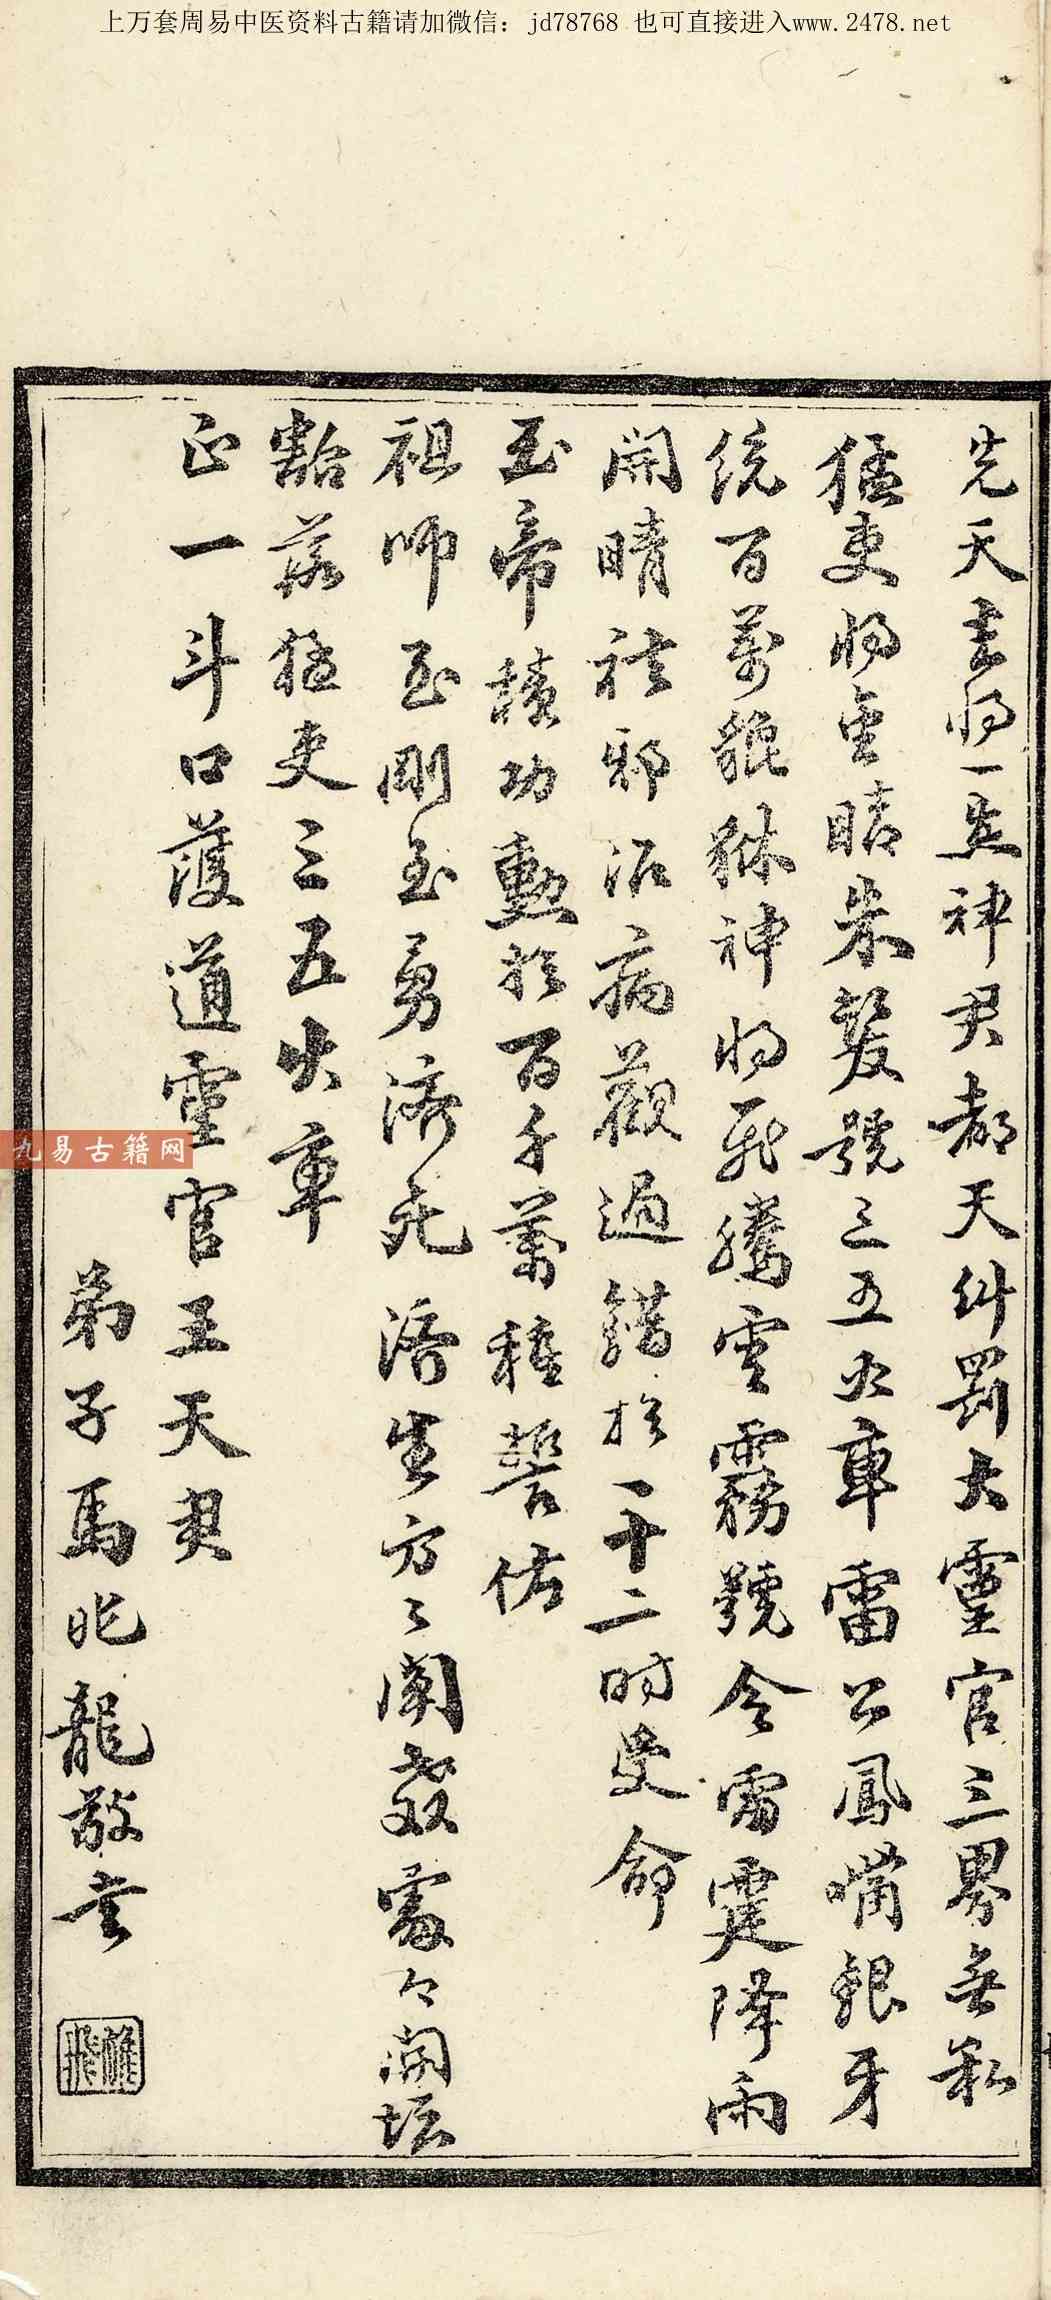 上万套周易中医资料古籍请加微信：jd78768 也可直接进入www.2478.net
先天主將一炁神君都天糾罰大靈官三界無私
猛吏將金睛朱髮號三五火車雷公鳳嘴銀牙
統百萬貔貅神將飛騰雲霧號令雷霆降雨
開晴袪邪治病觀過錯於一十二時受命
玉帝積功勳於百千萬種誓佑
祖師至剛至勇濟死濟生方々闡教處々開坛
豁落猛吏三五火車
正一斗口護道靈官王天君
弟子馬兆龍敬書
九易古籍网